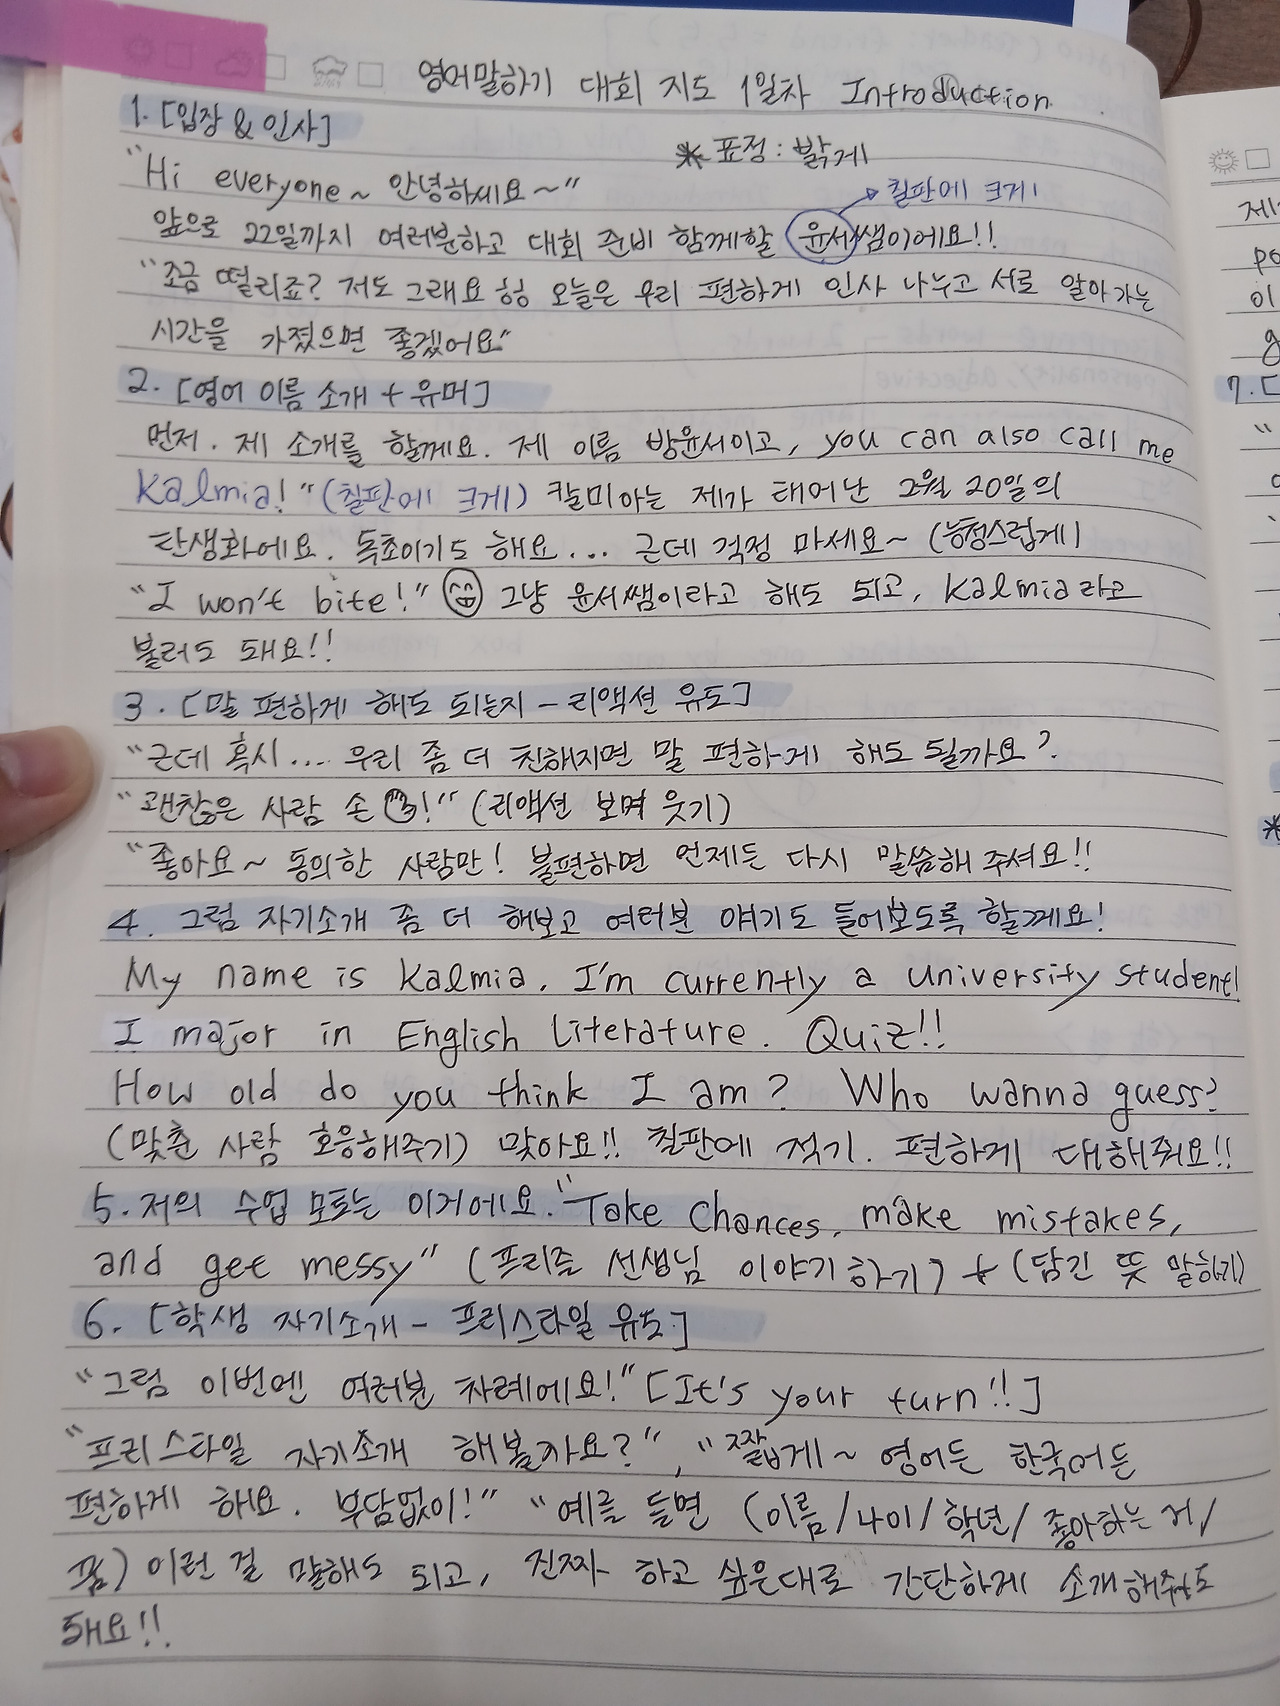 영어말하기 대회 지도 1일차 Introduction
1. [입장 & 인사]
* 표정 : 밝게
"Hi everyone~ 안녕하세요~"
→ 칠판에 크게!
앞으로 22일까지 여러분하고 대회 준비 함께할 윤서쌤이에요!!
"조금 떨리죠? 저도 그래요 헝 오늘은 우리 편하게 인사 나누고 서로 알아가는
시간을 가졌으면 좋겠어요"
2. [영어 이름 소개 + 유머]
먼저. 제 소개를 할께요. 제 이름 방윤서이고, you can also call me
Kalmia!" (칠판에 크게) 칼미아는 제가 태어난 2월 20일의
탄생화에요. 독초이기도 해요... 근데 걱정 마세요~ (능청스럽게)
"I won't bite!" 그냥 윤서쌤이라고 해도 되고, Kalmia라고
불러도 돼요!!
3. [말 편하게 해도 되는지 - 리액션 유도]
"근데 혹시... 우리 좀 더 친해지면 말 편하게 해도 될까요?
"괜찮은 사람 손!" (리액션 보며 웃기)
"좋아요~ 동의한 사람만! 불편하면 언제든 다시 말씀해 주셔요!!
4. 그럼 자기소개 좀 더 해보고 여러분 얘기도 들어보도록 할께요!
My name is Kalmia. I'm currently a university student!
I major in English Literature. Quiz!!
How old do you think I am? Who wanna guess?
(맞춘 사람 호응해주기) 맞아요!! 칠판에 적기. 편하게 대해줘요!!
5. 저의 수업 모토는 이거에요. "Take Chances, make mistakes,
and get messy" (프리즐 선생님 이야기하기) + (담긴 뜻 말하기)
6. [학생 자기소개 - 프리스타일 유도]
"그럼 이번엔 여러분 차례에요!" [It's your turn!!]
"프리스타일 자기소개 해볼까요?", "짧게~ 영어든 한국어든
편하게 해요. 부담없이!" "예를 들면 (이름/나이/학년/좋아하는 거/
꿈) 이런 걸 말해도 되고, 진짜 하고 싶은대로 간단하게 소개해줘도
돼요!!
제
po
이
7. [
"
*